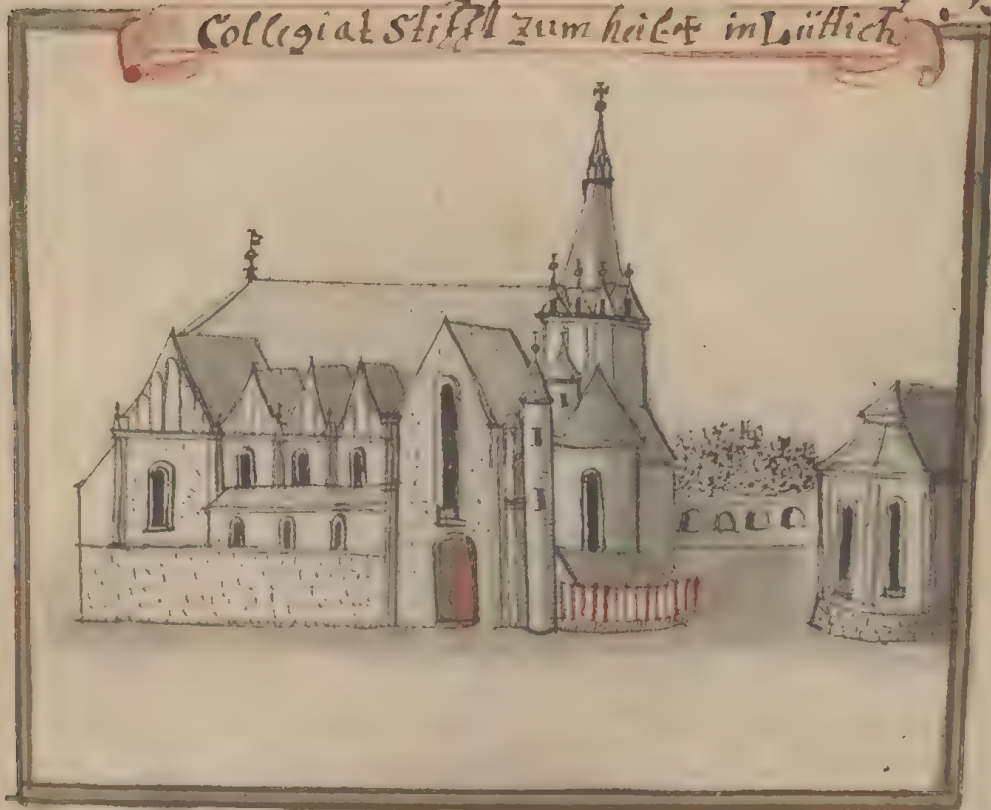 Collegiat Stifft zum heil. ✝ in Lüttich